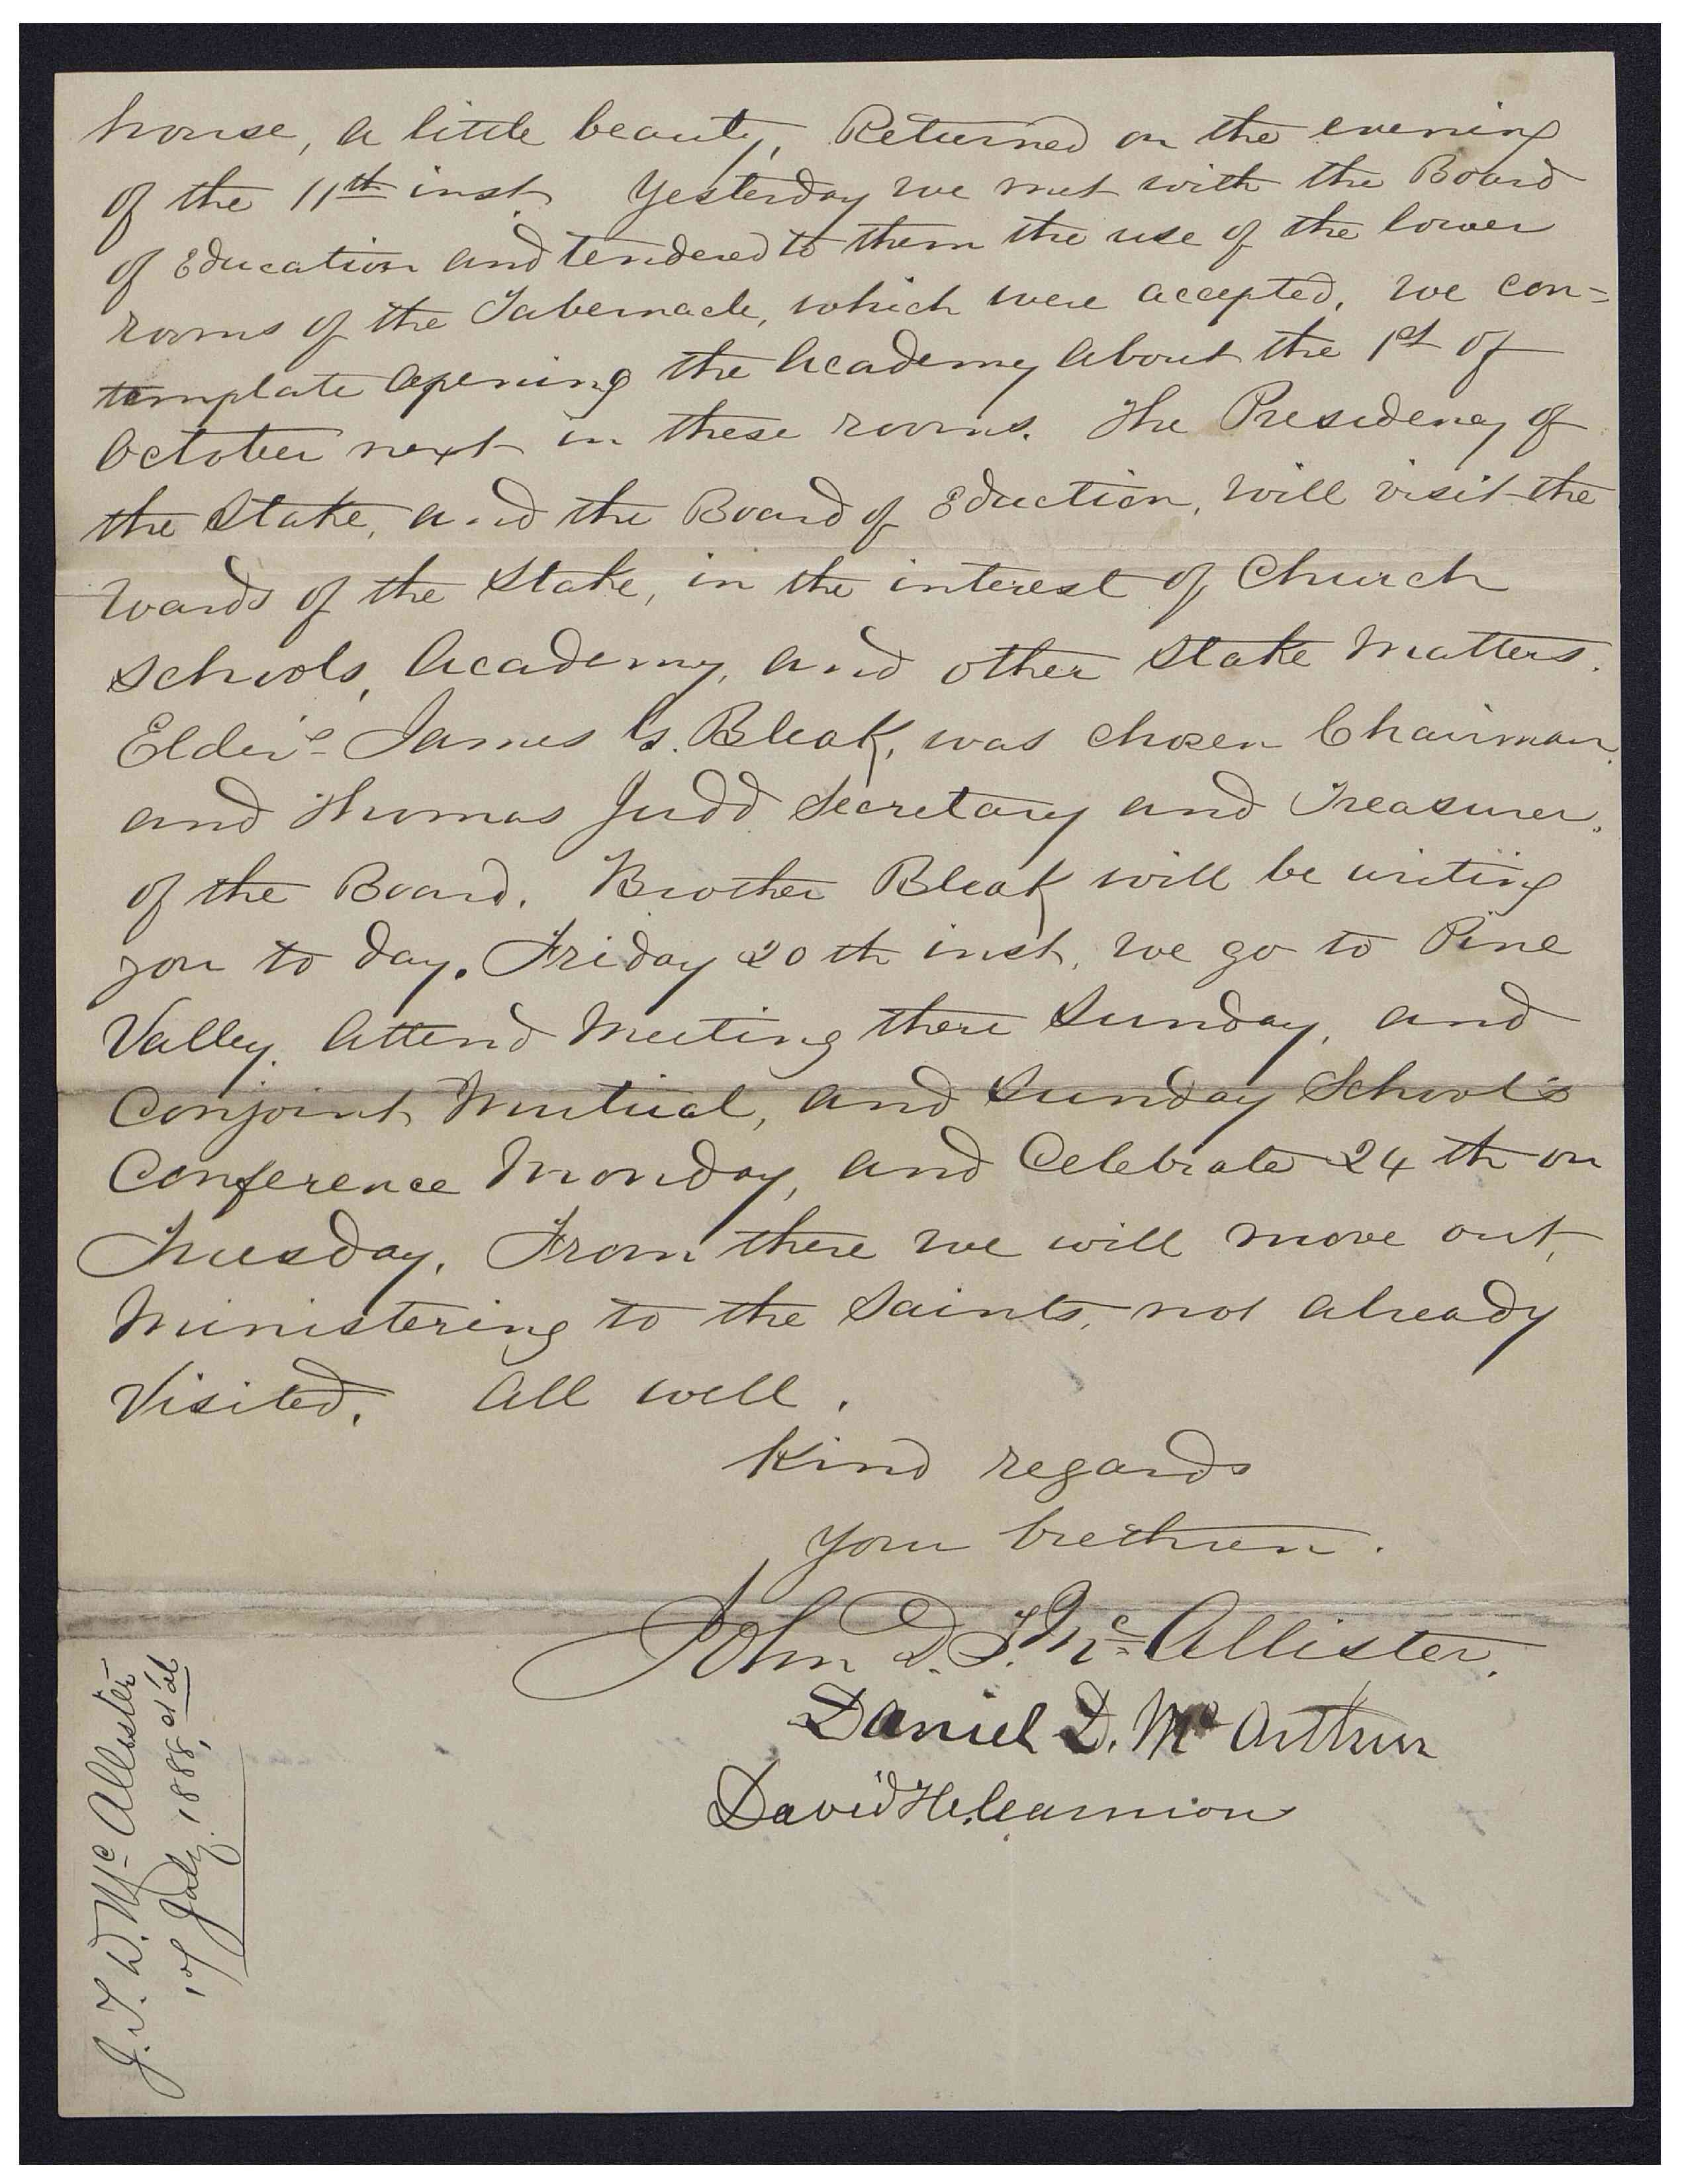 house, a little beauty, Returned on the evening
of the 11th inst. Yesterday we met with the Board
of Education and tendered to them the use of the lower
rooms of the Tabernacle, which were accepted. We con=
template opening the Academy about the 1st of
October next in these rooms. The Presidency of
the Stake, and the Board of Eduction, will visit the
wards of the Stake, in the interest of Church
schools, Academy, and other Stake Matters.
Elders James G. Bleak, was chosen Chairman,
and Thomas Judd Secretary and Treasurer.
of the Board. Brother Bleak will be writing
you to day. Friday 20th inst, we go to Pine
Valley. Attend Meeting there Sunday, and
Conjoint Mutual, and Sunday School's
Conference Monday, and Celebrate 24th on
Tuesday. From there we will move out,
Ministering to the Saints, not already
Visited. All well.
Kind regards
Your brethren.
John D. T. McAllister.
Daniel D. McArthur
David H. Cannon
J. T. D. McAllister
17 July. 1888,